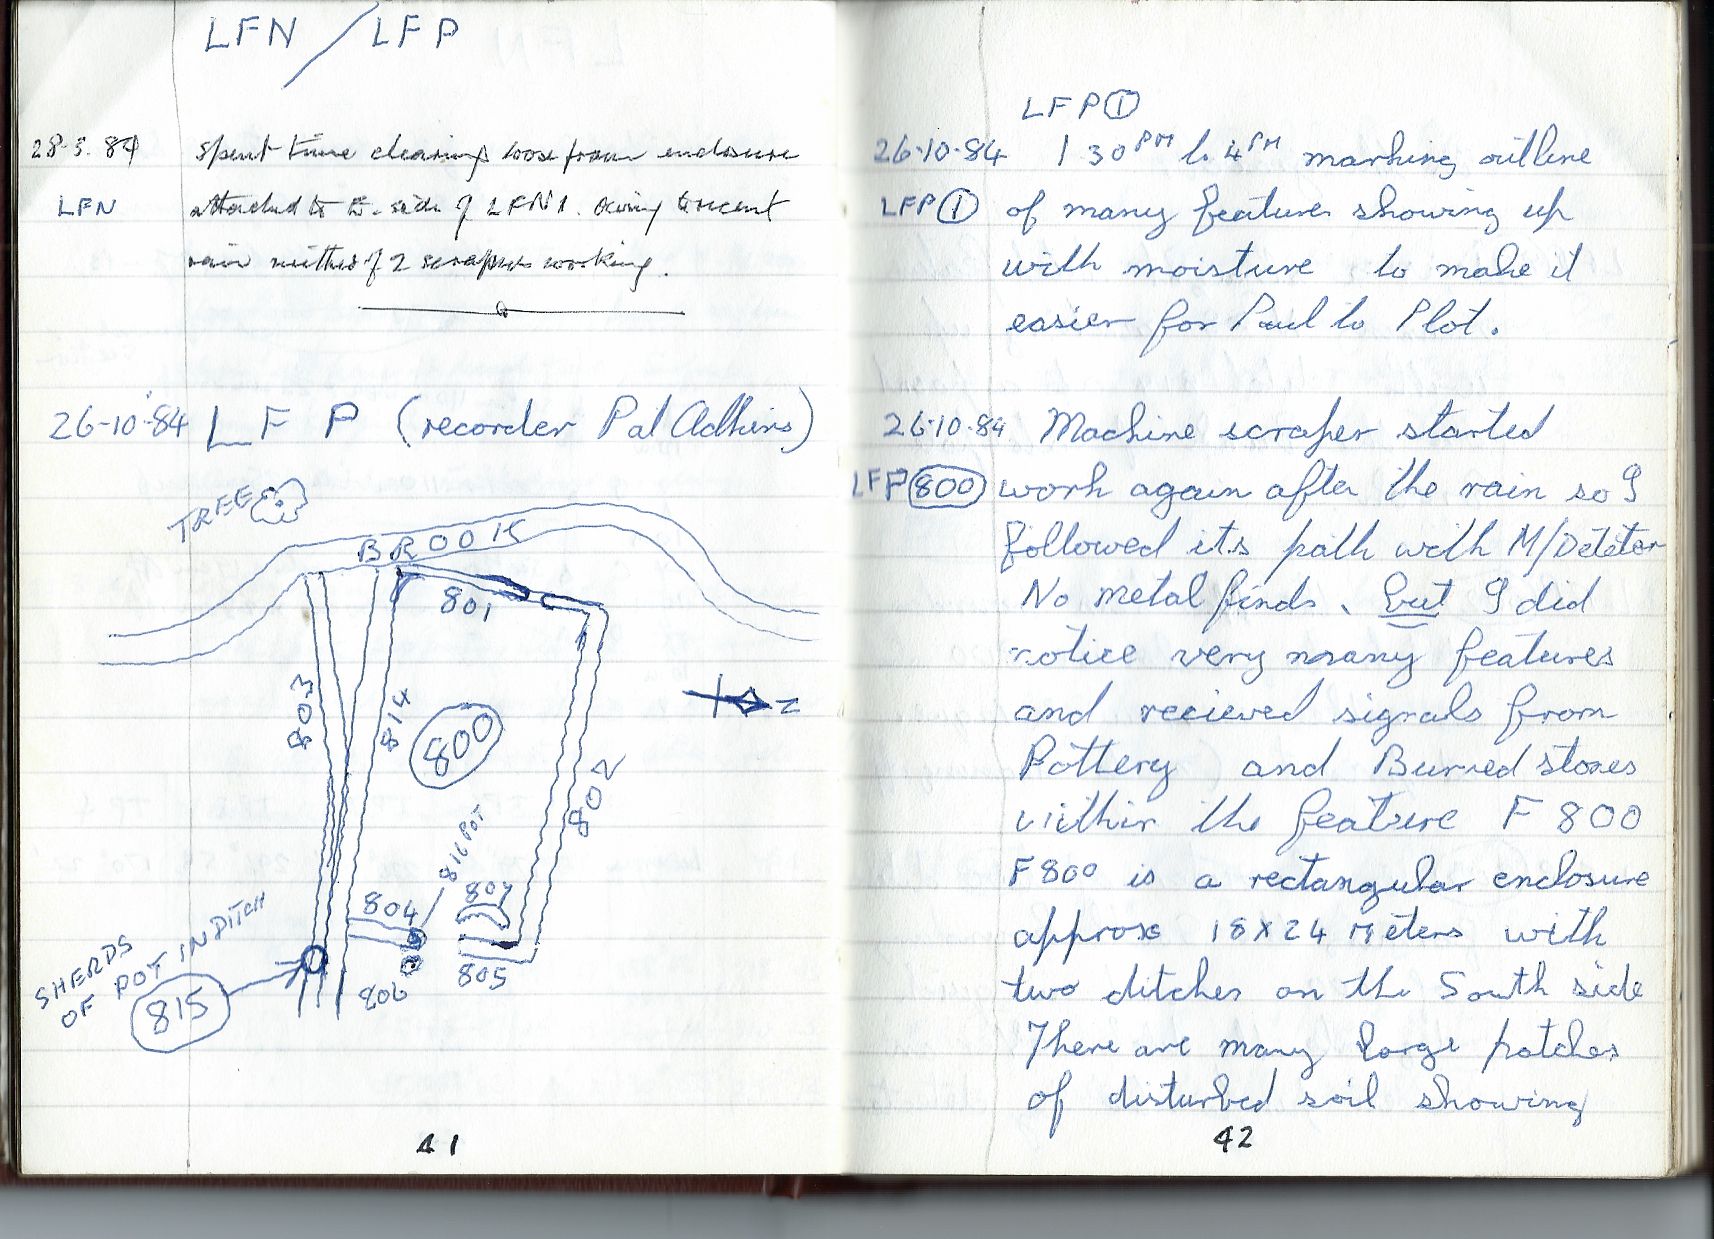 LFN / LFP
28-5-84 spent time clearing loose from enclosure
LFN attached to E. side of LFN 1. Owing to recent
rain neither of 2 scrapers working.
26-10-84 LFP (recorder Pal Adkins)
TREE
BROOK
801
803
814
800
802
816 POT
807
804
805
806
SHERDS
OF POT IN DITCH
815
41
LFP ①
26-10-84 1 30 PM to 4 PM marking outline
LFP ① of many features showing up
with moisture to make it
easier for Paul to Plot.
26-10-84 Machine scraper started
LFP 800 work again after the rain so I
followed its path with M/Detetor
No metal finds, but I did
notice very many features
and recieved signals from
Pottery and Burned stones
within the feature F 800
F800 is a rectangular enclosure
approx 18 X 24 Meters with
two ditches on the South side
There are many large patches
of disturbed soil showing
42